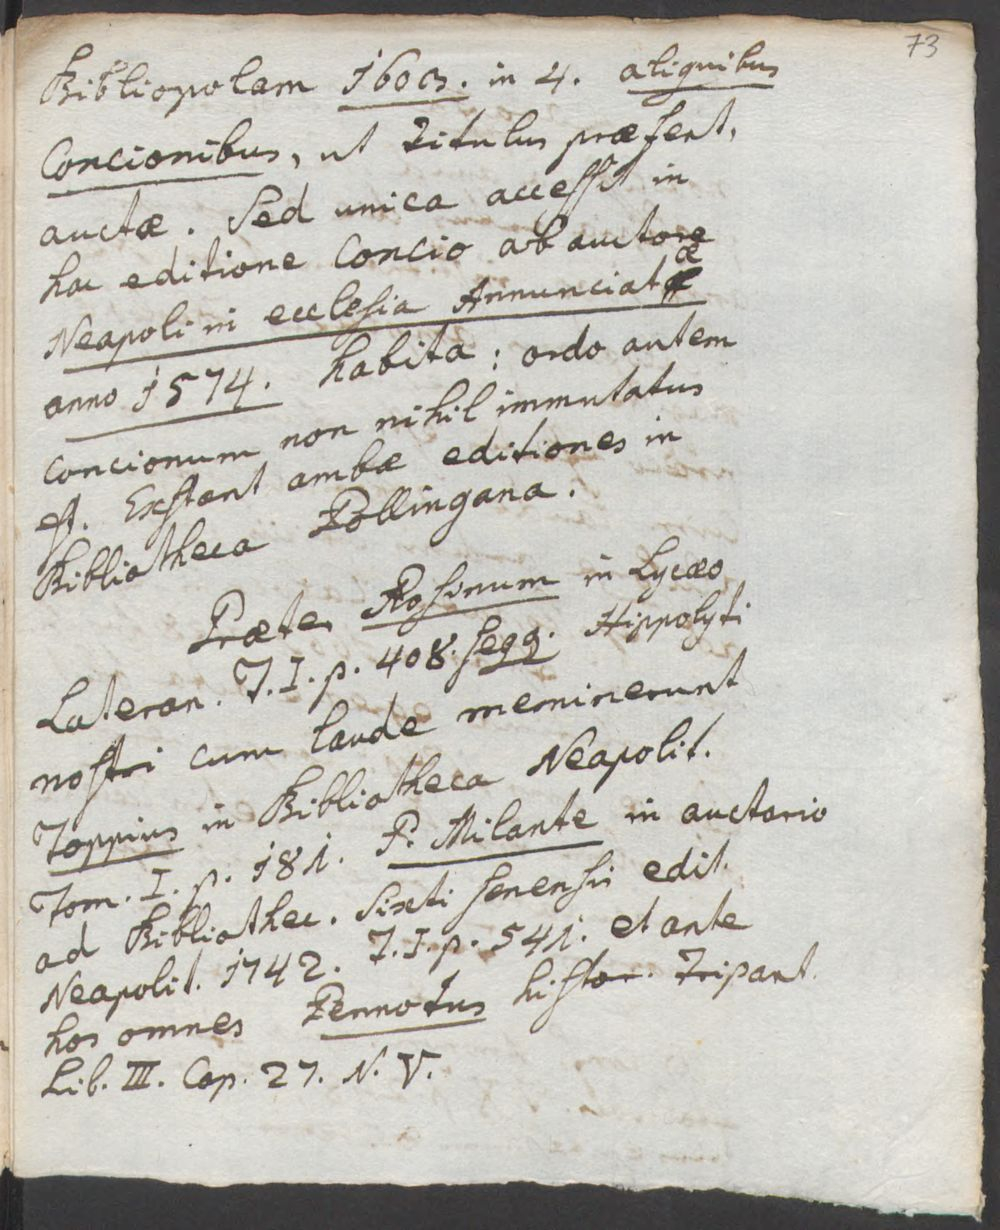 73
Bibliopolam 1603. in 4. aliquibus
Concionibus, ut Titulus præfert,
auctæ. Sed unica accessit in
hac editione Concio ab auctore
Neapoli in ecclesia Annunciatæ
anno 1574. habita: ordo autem
concionum non nihil immutatus
est. Exstant ambæ editiones in
Bibliotheca Pollingana.
Præter Rosinum in Lycæo
Lateran. T.I.p. 408. seqq. Hippolyti
nostri cum laude meminerunt
Toppius in Bibliotheca Neapolit.
Tom. I. p. 181. P. Milante in auctario
ad Bibliothec. Sixti Senensis edit.
Neapolit. 1742. T.I.p. 541. et ante
hos omnes Pennotus histor. Tripart.
Lib. III. Cap. 27. N. V.